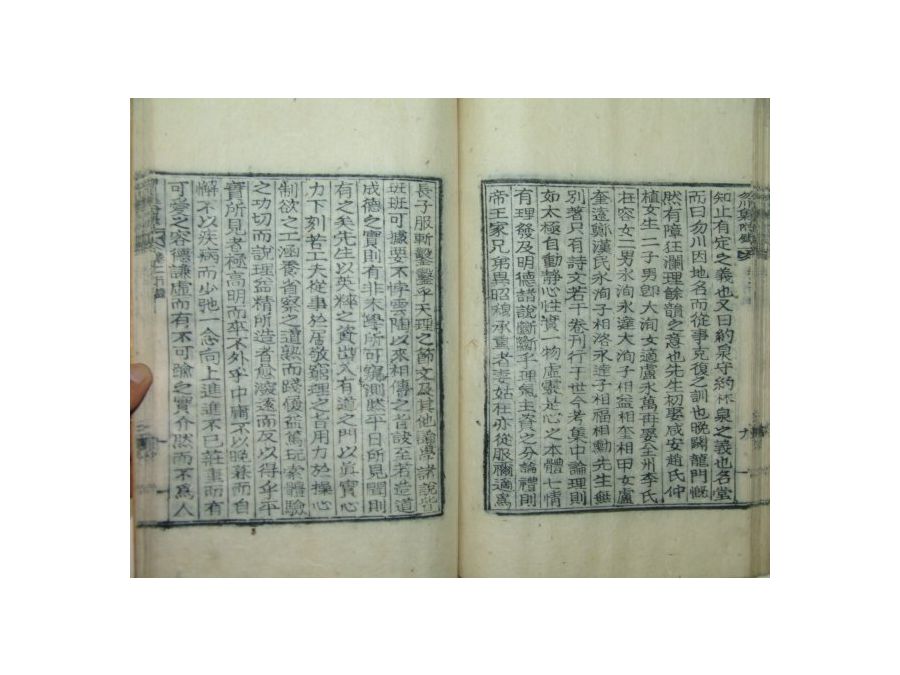 知止有定之義也又曰約泉守約林泉之義也名堂
而曰勿川因地名而從事克復之訓也晚闢龍門慨
然有障狂瀾理餘韻之意也先生初娶咸安趙氏仲
植女生二子男卽大洵女適盧永萬再娶全州李氏
在容女二男永洵永達大洵子相益相奎相甲女盧
奎遠鄭漢民永洵子相洛永達子相福相勳先生無
別著只有詩文若干卷刊行于世今考集中論理則
如太極自動靜心性實一物虛靈是心之本體七情
有理發及明德諸說斷斷乎理氣主資之分論禮則
帝王家兄弟異昭穆承重者妻姑在亦從服禰適爲
長子服斬鑿鑿乎天理之節文及其他論學諸說皆
班班可據要不悖雲陶以來相傳之旨訣至若造道
成德之實則有非末學所可窺測然平日所見聞則
有之矣先生以英粹之資出入有道之門以眞實心
力下刻苦工夫從事於居敬窮理之旨用力於操心
制欲之工涵養省察之道熟而踐履益篤玩索體驗
之功切而說理益精所造者愈深遠而反以得乎平
實所見者極高明而卒不外乎中庸不以晚暮而自
懈不以疾病而少弛一念向上進進不已莊重而有
可愛之容德謙虛而有不可踰之實介然而不爲人